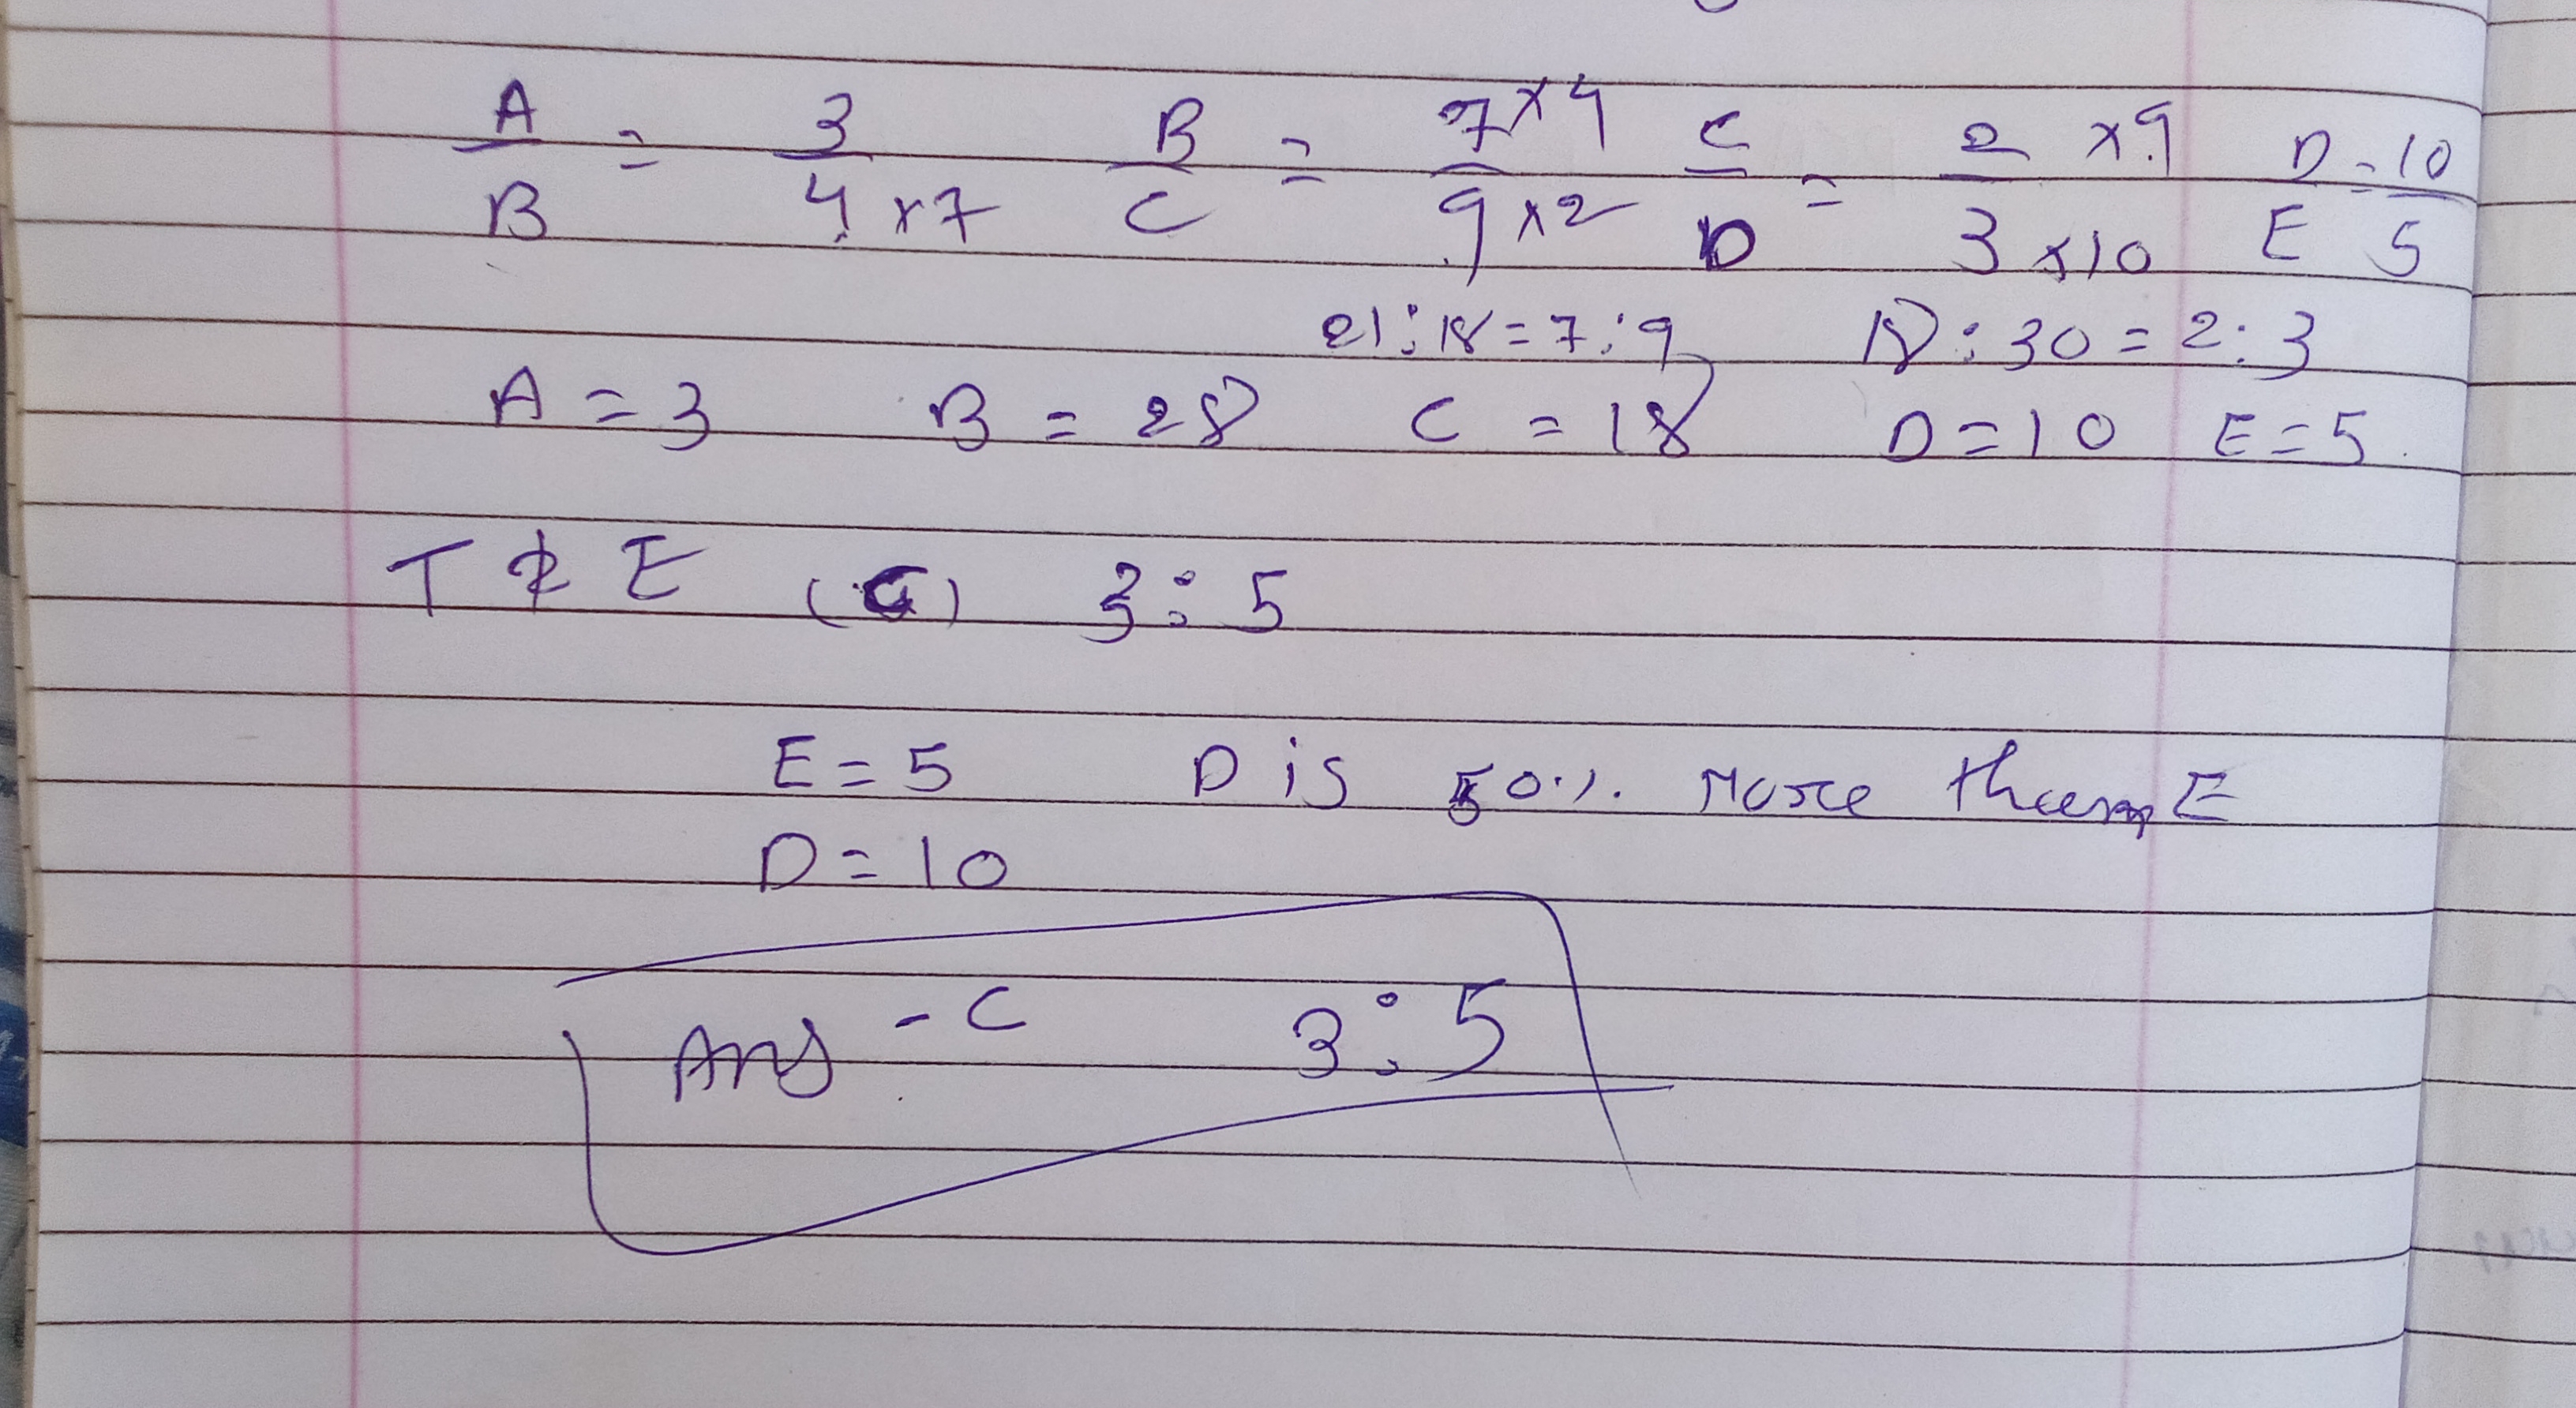 A/B = 3/4 x 7 B/C = 7 x 4/9 x 2 C/D = 2 x 9/3 x 10 D/E = 10/5
21 : 18 = 7 : 9 18 : 30 = 2 : 3
A = 3 B = 28 C = 18 D = 10 E = 5
T & E (C) 3 : 5
E = 5 D is 50% More than E
D = 10
Ans - C 3 : 5